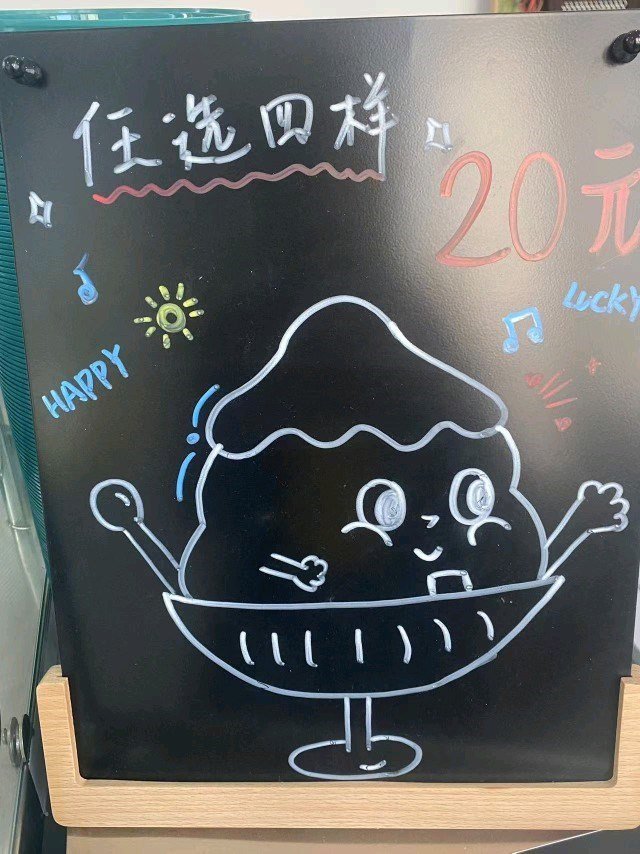 任选四样
20元
LUCKY
HAPPY